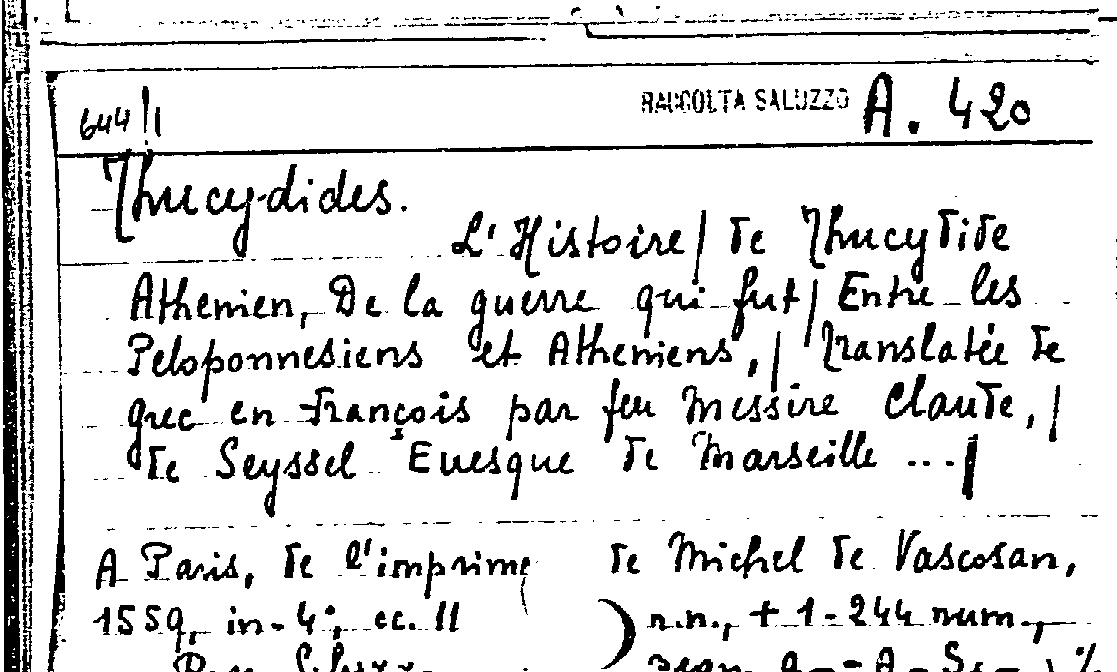 644/1 RACCOLTA SALUZZO A. 420
Thucydides.
L'Histoire/ de Thucydide
Athenien, De la guerre qui fut/ Entre les
Peloponnesiens et Atheniens,/ Translatée de
grec en François par feu Messire Claude,/
de Seyssel Euesque de Marseille .../
A Paris, de l'imprime de Michel de Vascosan,
1559, in-4°, cc. II n.n., + 1-244 num.,